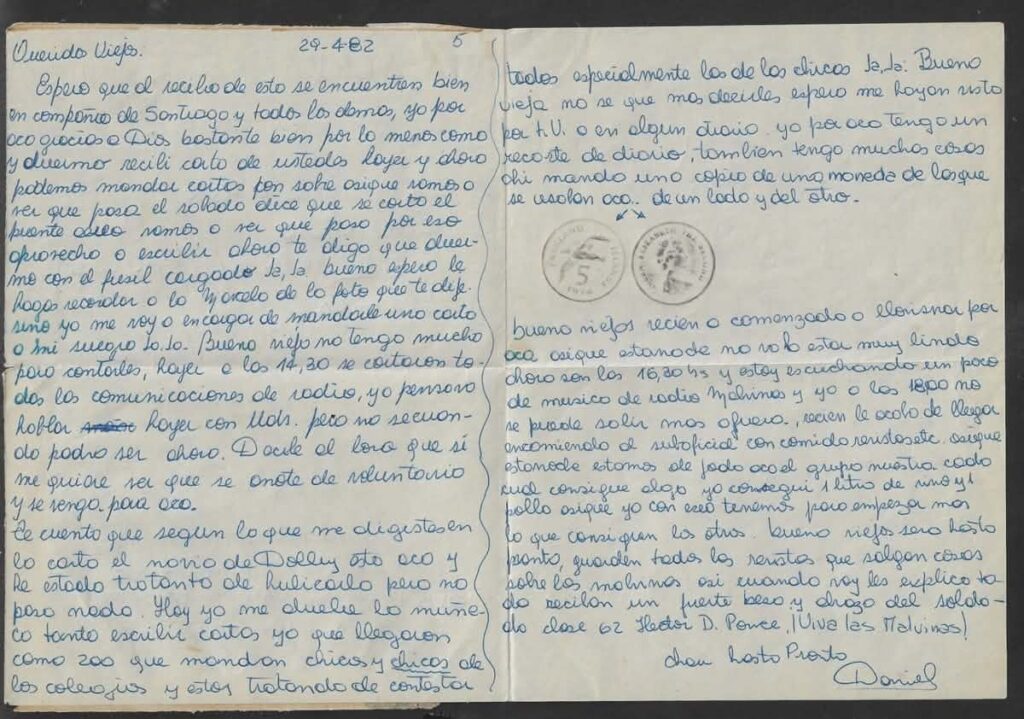 Querido Viejo. 29-4-82 5
Espero que al recibo de esto se encuentren bien
en compañia de Santiago y todos los demas, yo por
aca gracias a Dios bastante bien por lo menos como
y duermo recibi carta de ustedes hayer y ahora
podemos mandar cartas por sobre asique vamos a
ver que pasa el sabado dice que se corta el
puente vamos a ver que pasa por eso
aprovecho a escribir ahora te digo que duer-
mo con el fusil cargado Ja, Ja. bueno espero le
hagas recordar a la Marcela de la foto que te dije
sino yo me voy a encargar de mandarle una carta
a mi suegro Ja.Ja. Bueno viejo no tengo mucho
para contarles, hayer a las 14,30 se cortaron to-
das las comunicaciones de radio, yo pensava
hablar hayer con Uds. pero no se cuan-
do podra ser ahora. Decile al lora que si
me quiere ver que se anote de voluntario
y se venga para aca.
Te cuento que segun lo que me digistes en
la carta el novio de Dolly esta aca y
he estado tratanto de hubicarlo pero no
pero nada. Hoy ya me duele la muñe-
ca tanto escribir cartas ya que llegaron
como 200 que mandan chicos y chicas de
los colegios y estoy tratando de contestar
todas especialmente las de las chicas Ja, Ja. Bueno
vieja no se que mas decirles espero me hayan visto
por T.V. o en algun diario. yo por aca tengo un
recorte de diario, tambien tengo muchas cosas
ahi mando una copia de una moneda de las que
se usaban aca.. de un lado y del otro.
FALKLAND ISLANDS 5 1974
QUEEN ELIZABETH THE SECOND
bueno viejos recien a comenzado a lloviznar por
aca asique estanode no va ha estar muy lindo
ahora son las 16,30 hs y estoy escuchando un poco
de musica de radio Malvinas y ya a las 1800 no
se puede salir mas afuera, recien le acaba de llegar
encomienda al suboficial con comida revistas etc. asique
estanode estamos de jodo aca el grupo nuestro cada
cual consigue algo yo consegui 1 litro de vino y 1
pollo asique ya con eso tenemos para empezar mas
lo que consigan los otros. bueno viejos sera hasta
pronto, guarden todas las revistas que salgan cosas
sobre las malvinas asi cuando voy les explico to-
do reciban un fuerte beso y abrazo del solda-
do clase 62 Hector D. Ponce, ¡Viva las Malvinas!
chau hasta Pronto
Daniel